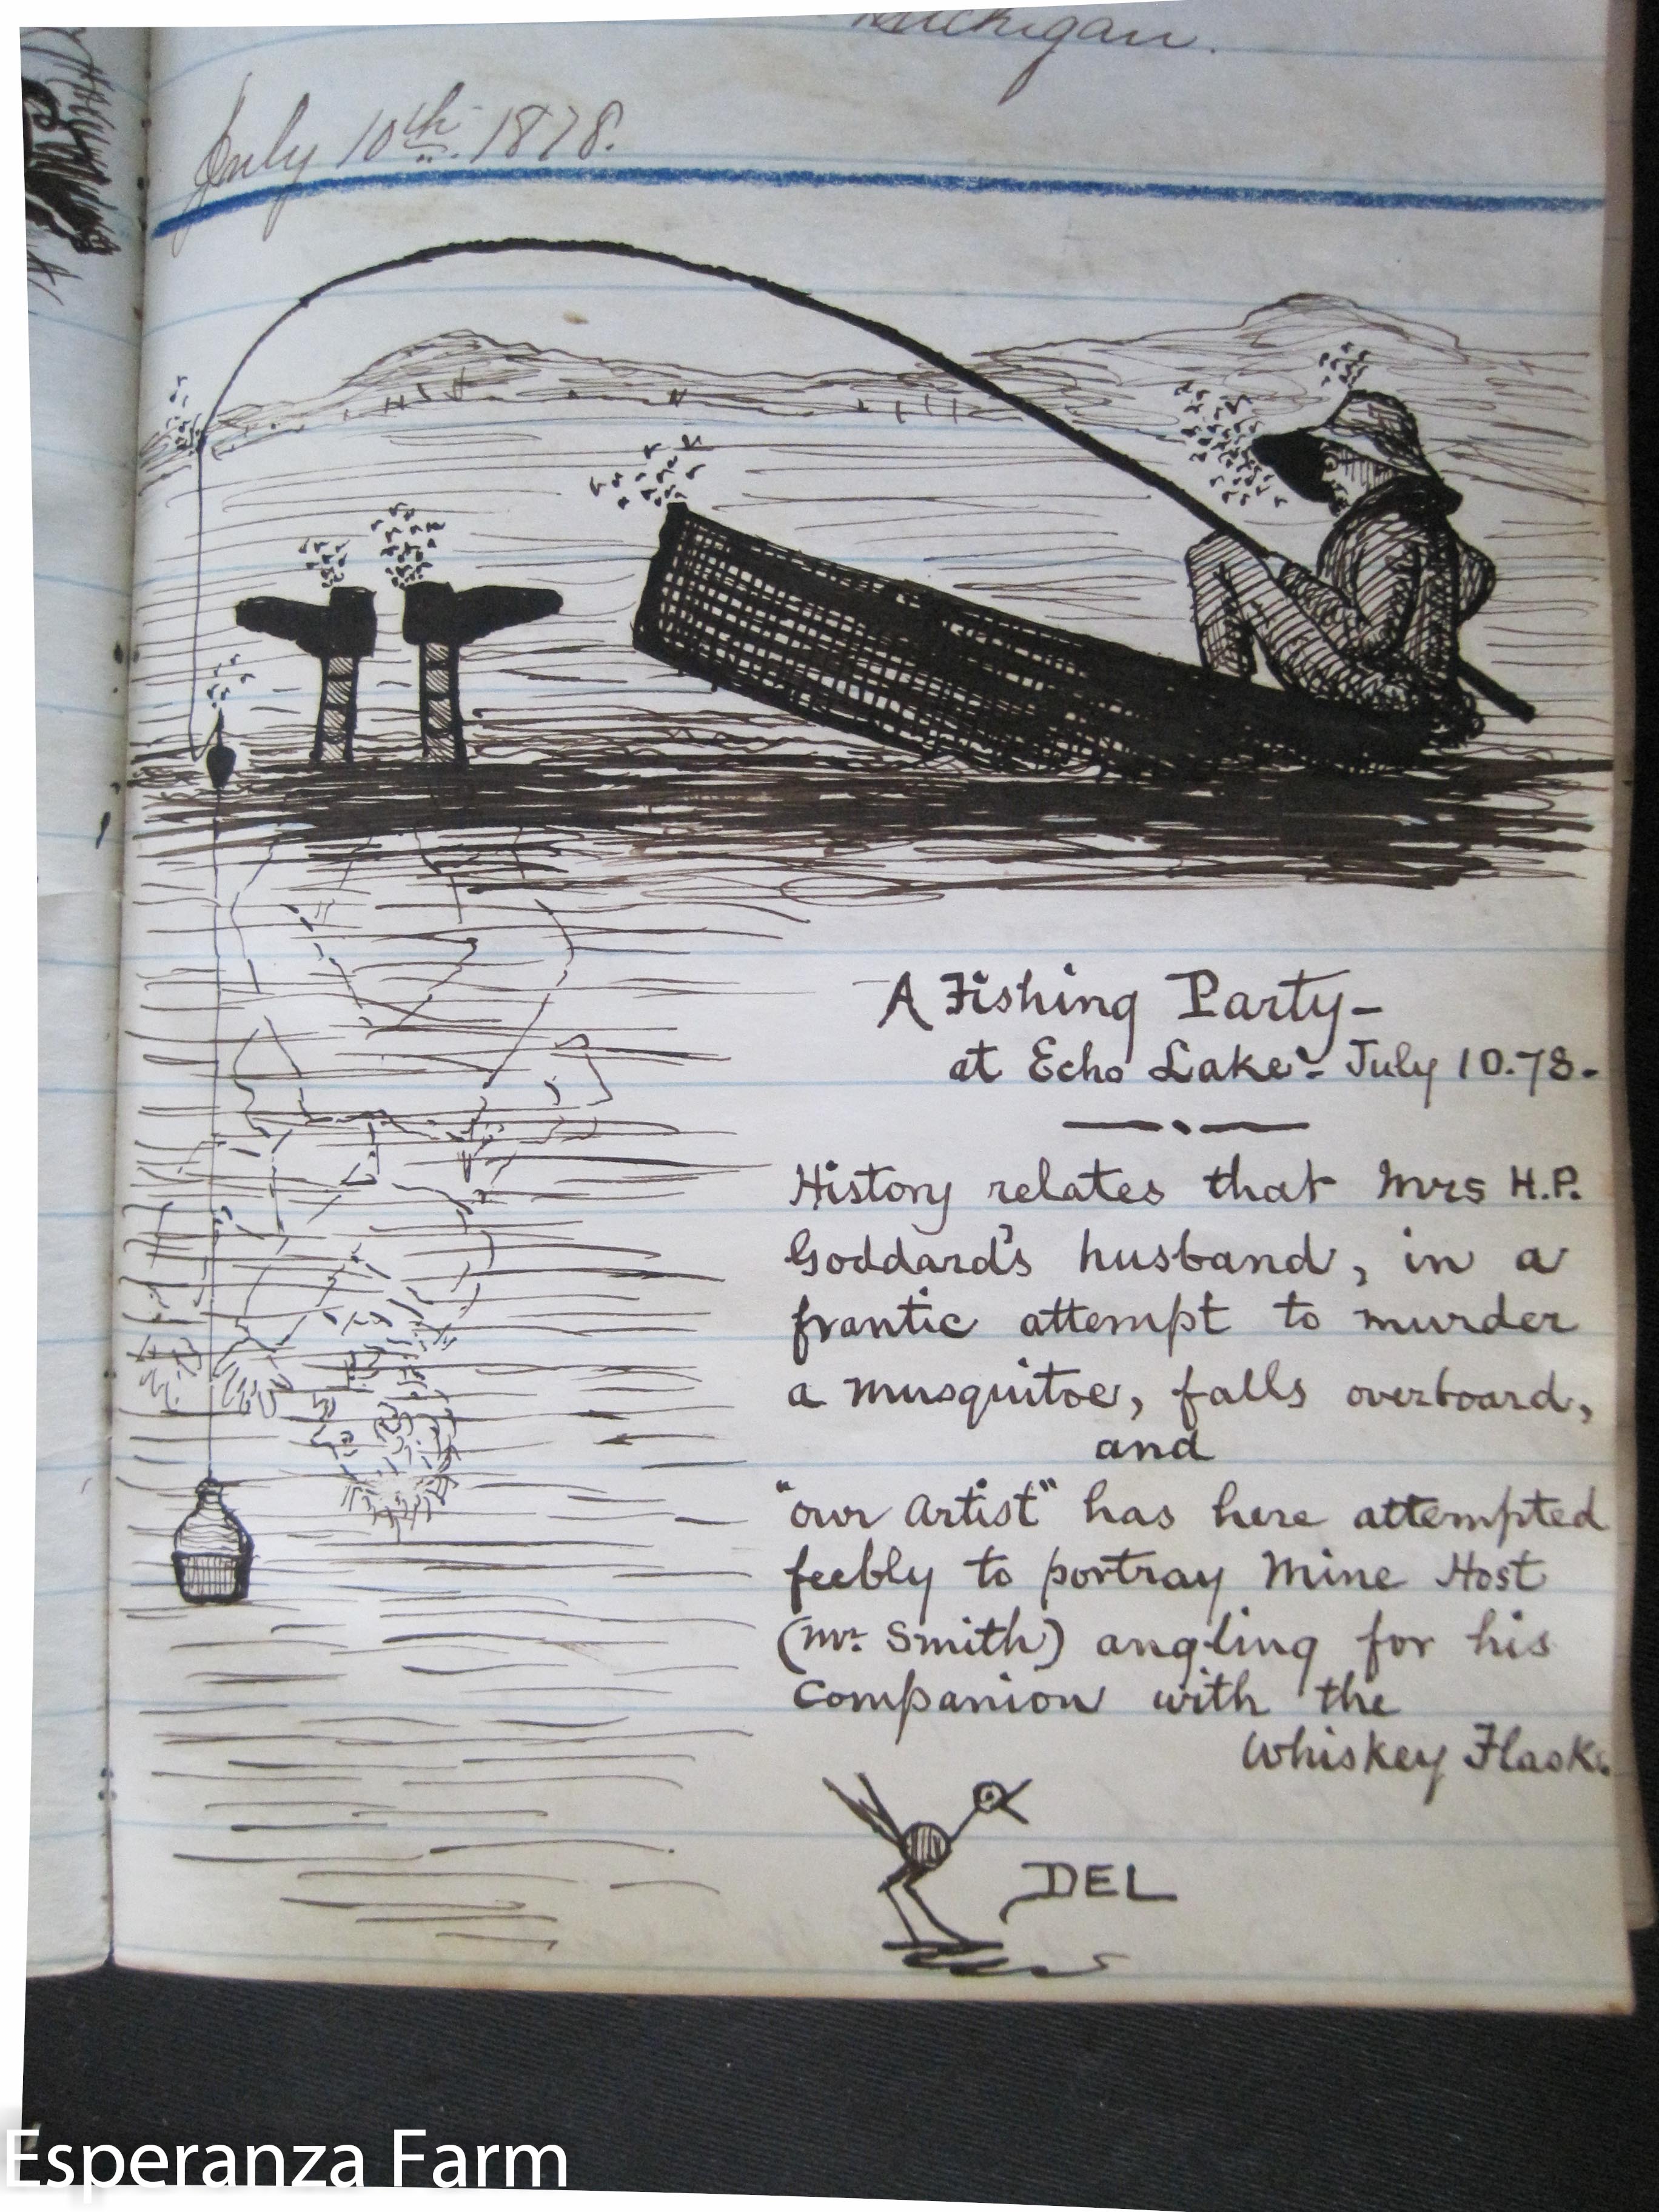 Michigan.
July 10th. 1878.
A Fishing Party-
at Echo Lake - July 10.78.
History relates that Mrs H.P.
Goddard's husband, in a
frantic attempt to murder
a musquitoe, falls overboard,
and
"our Artist" has here attempted
feebly to portray Mine Host
(Mr. Smith) angling for his
Companion with the
Whiskey Flask.
DEL
Esperanza Farm